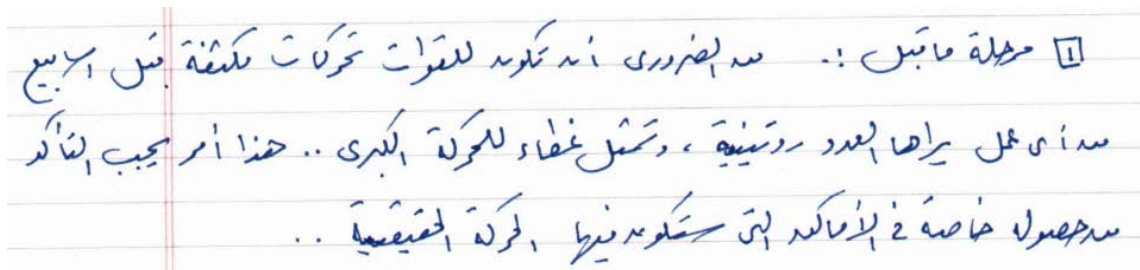 1 مرحلة ما قبل :. من الضرورى أن تكون للقوات تحركات مكثفة قبل اسابيع
من أى عمل يراها العدو روتينية ، وتمثل غطاء للحركة الكبرى .. هذا أمر يجب التأكد
من حصوله خاصة في الأماكن التى ستكون فيها الحركة الحقيقية ..